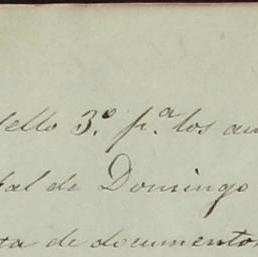 sello 3.º p.ª los au
tal de Domingo
ta de documentos